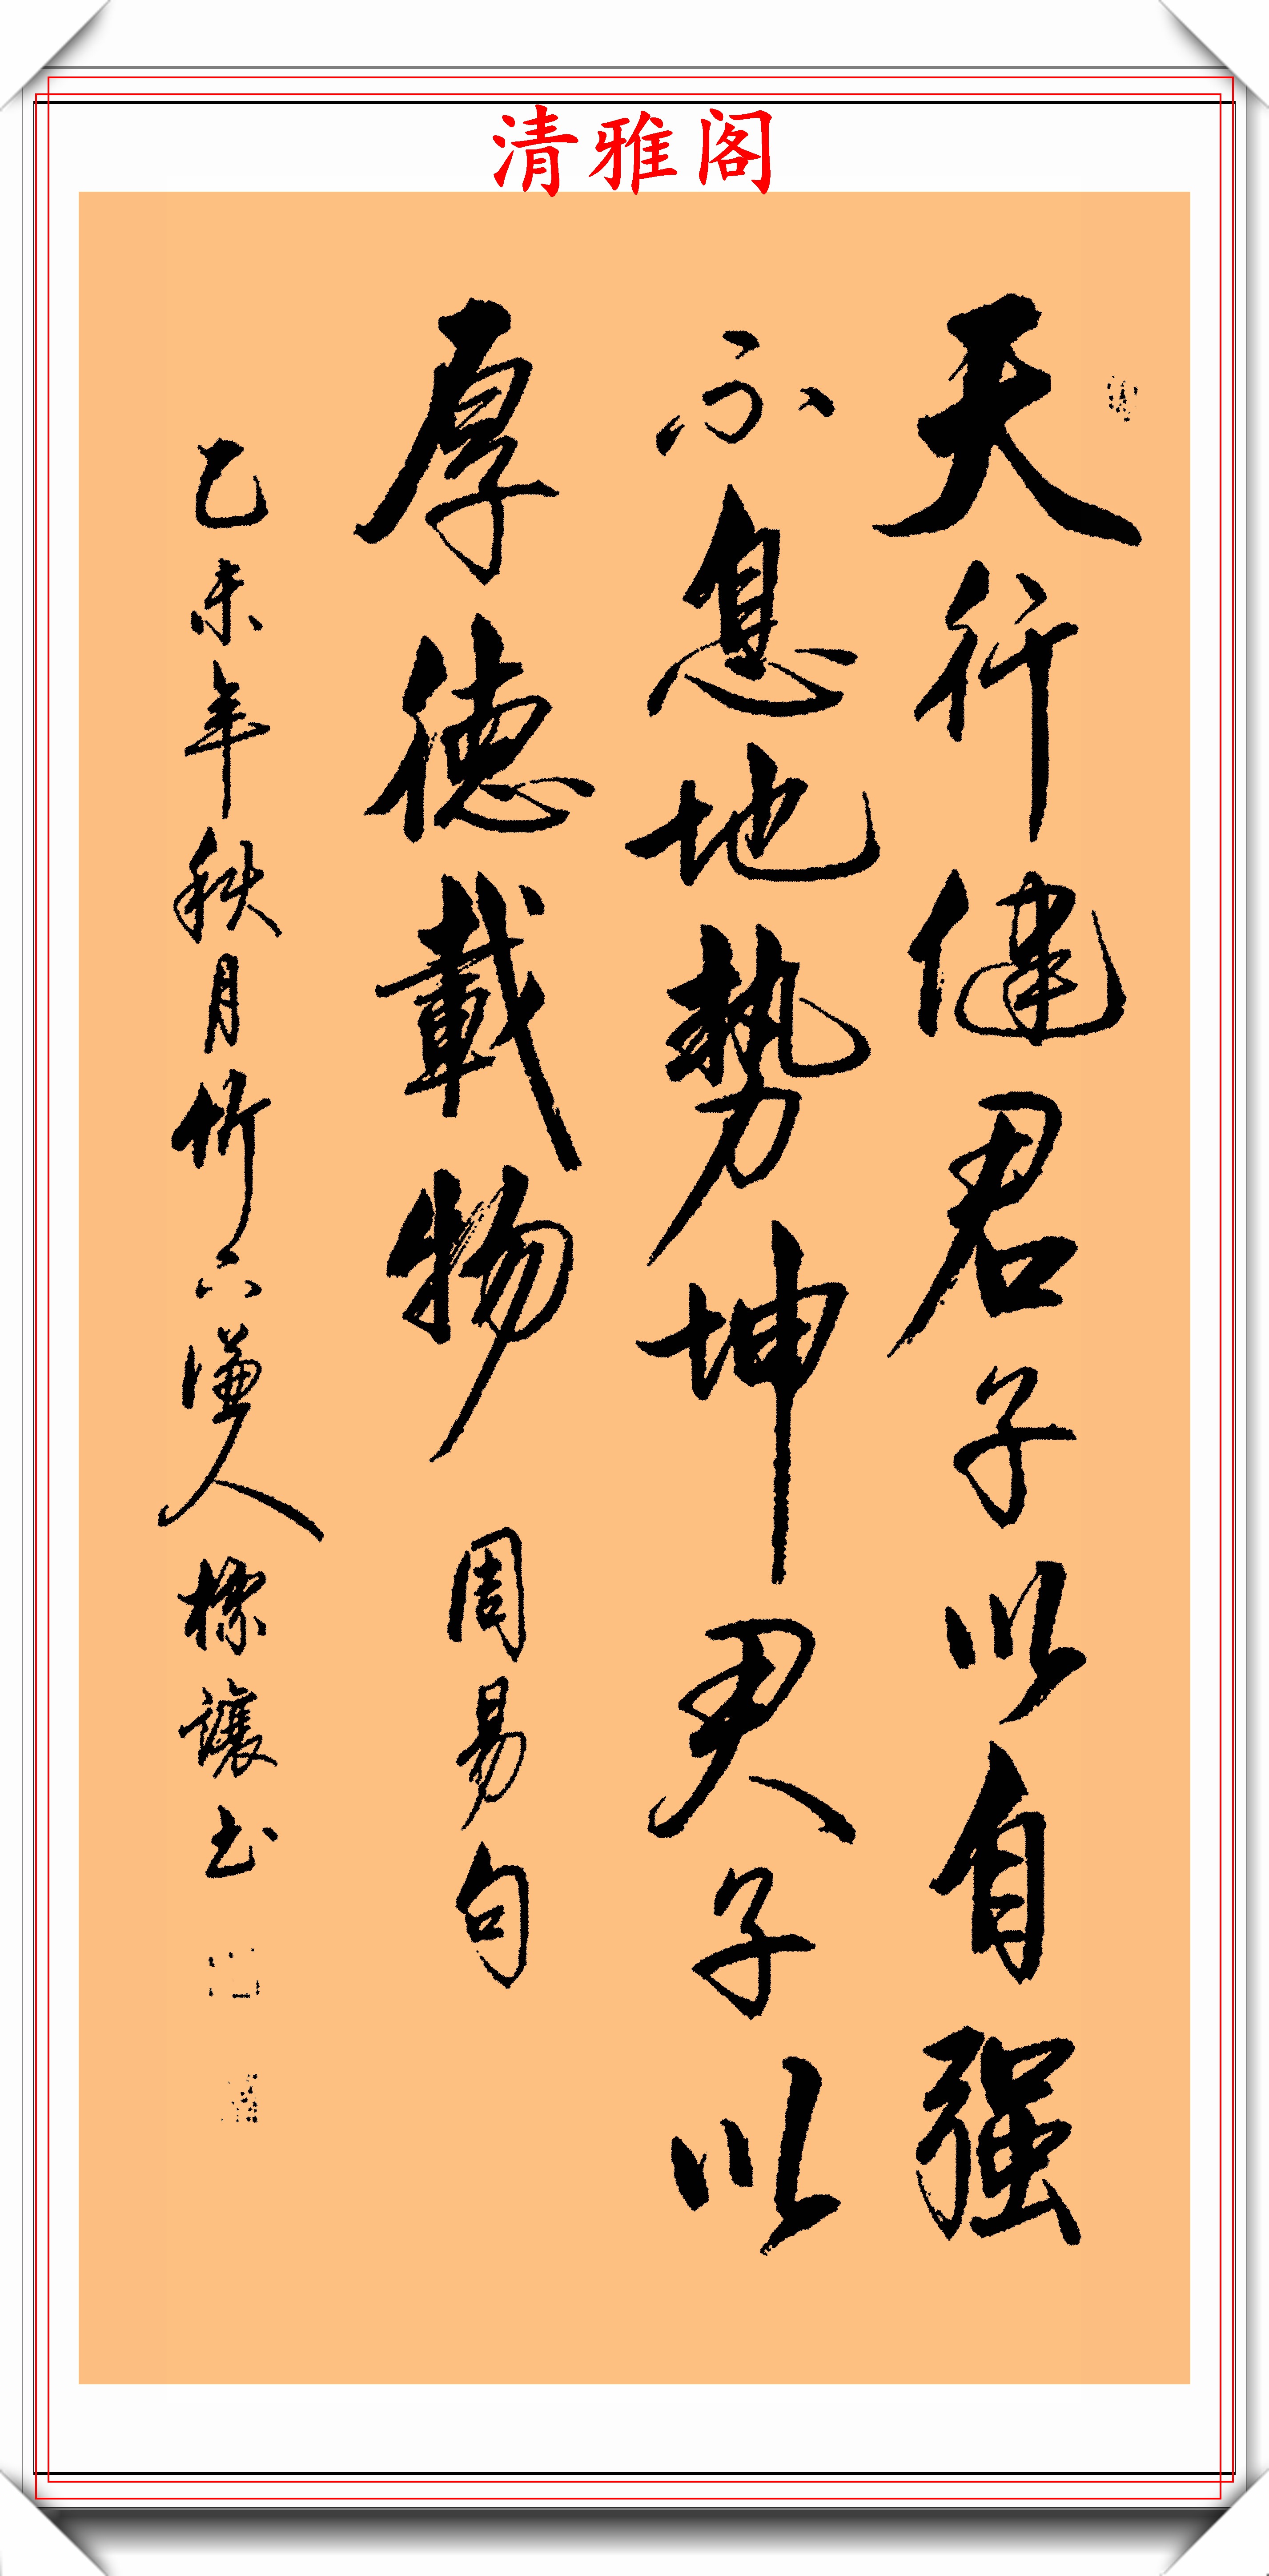 清雅阁
天行健君子以自强
不息地勢坤君子以
厚德載物 周易句
乙未年秋月竹六謙人樣讓书